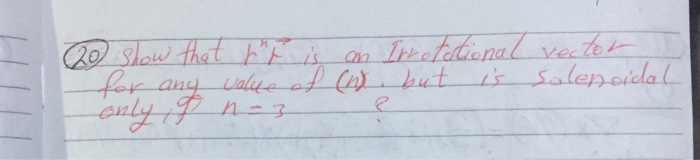 20 Show that rⁿr⃗ is an Irrotational vector
for any value of (n). but is Solenoidal
only if n = 3 ?